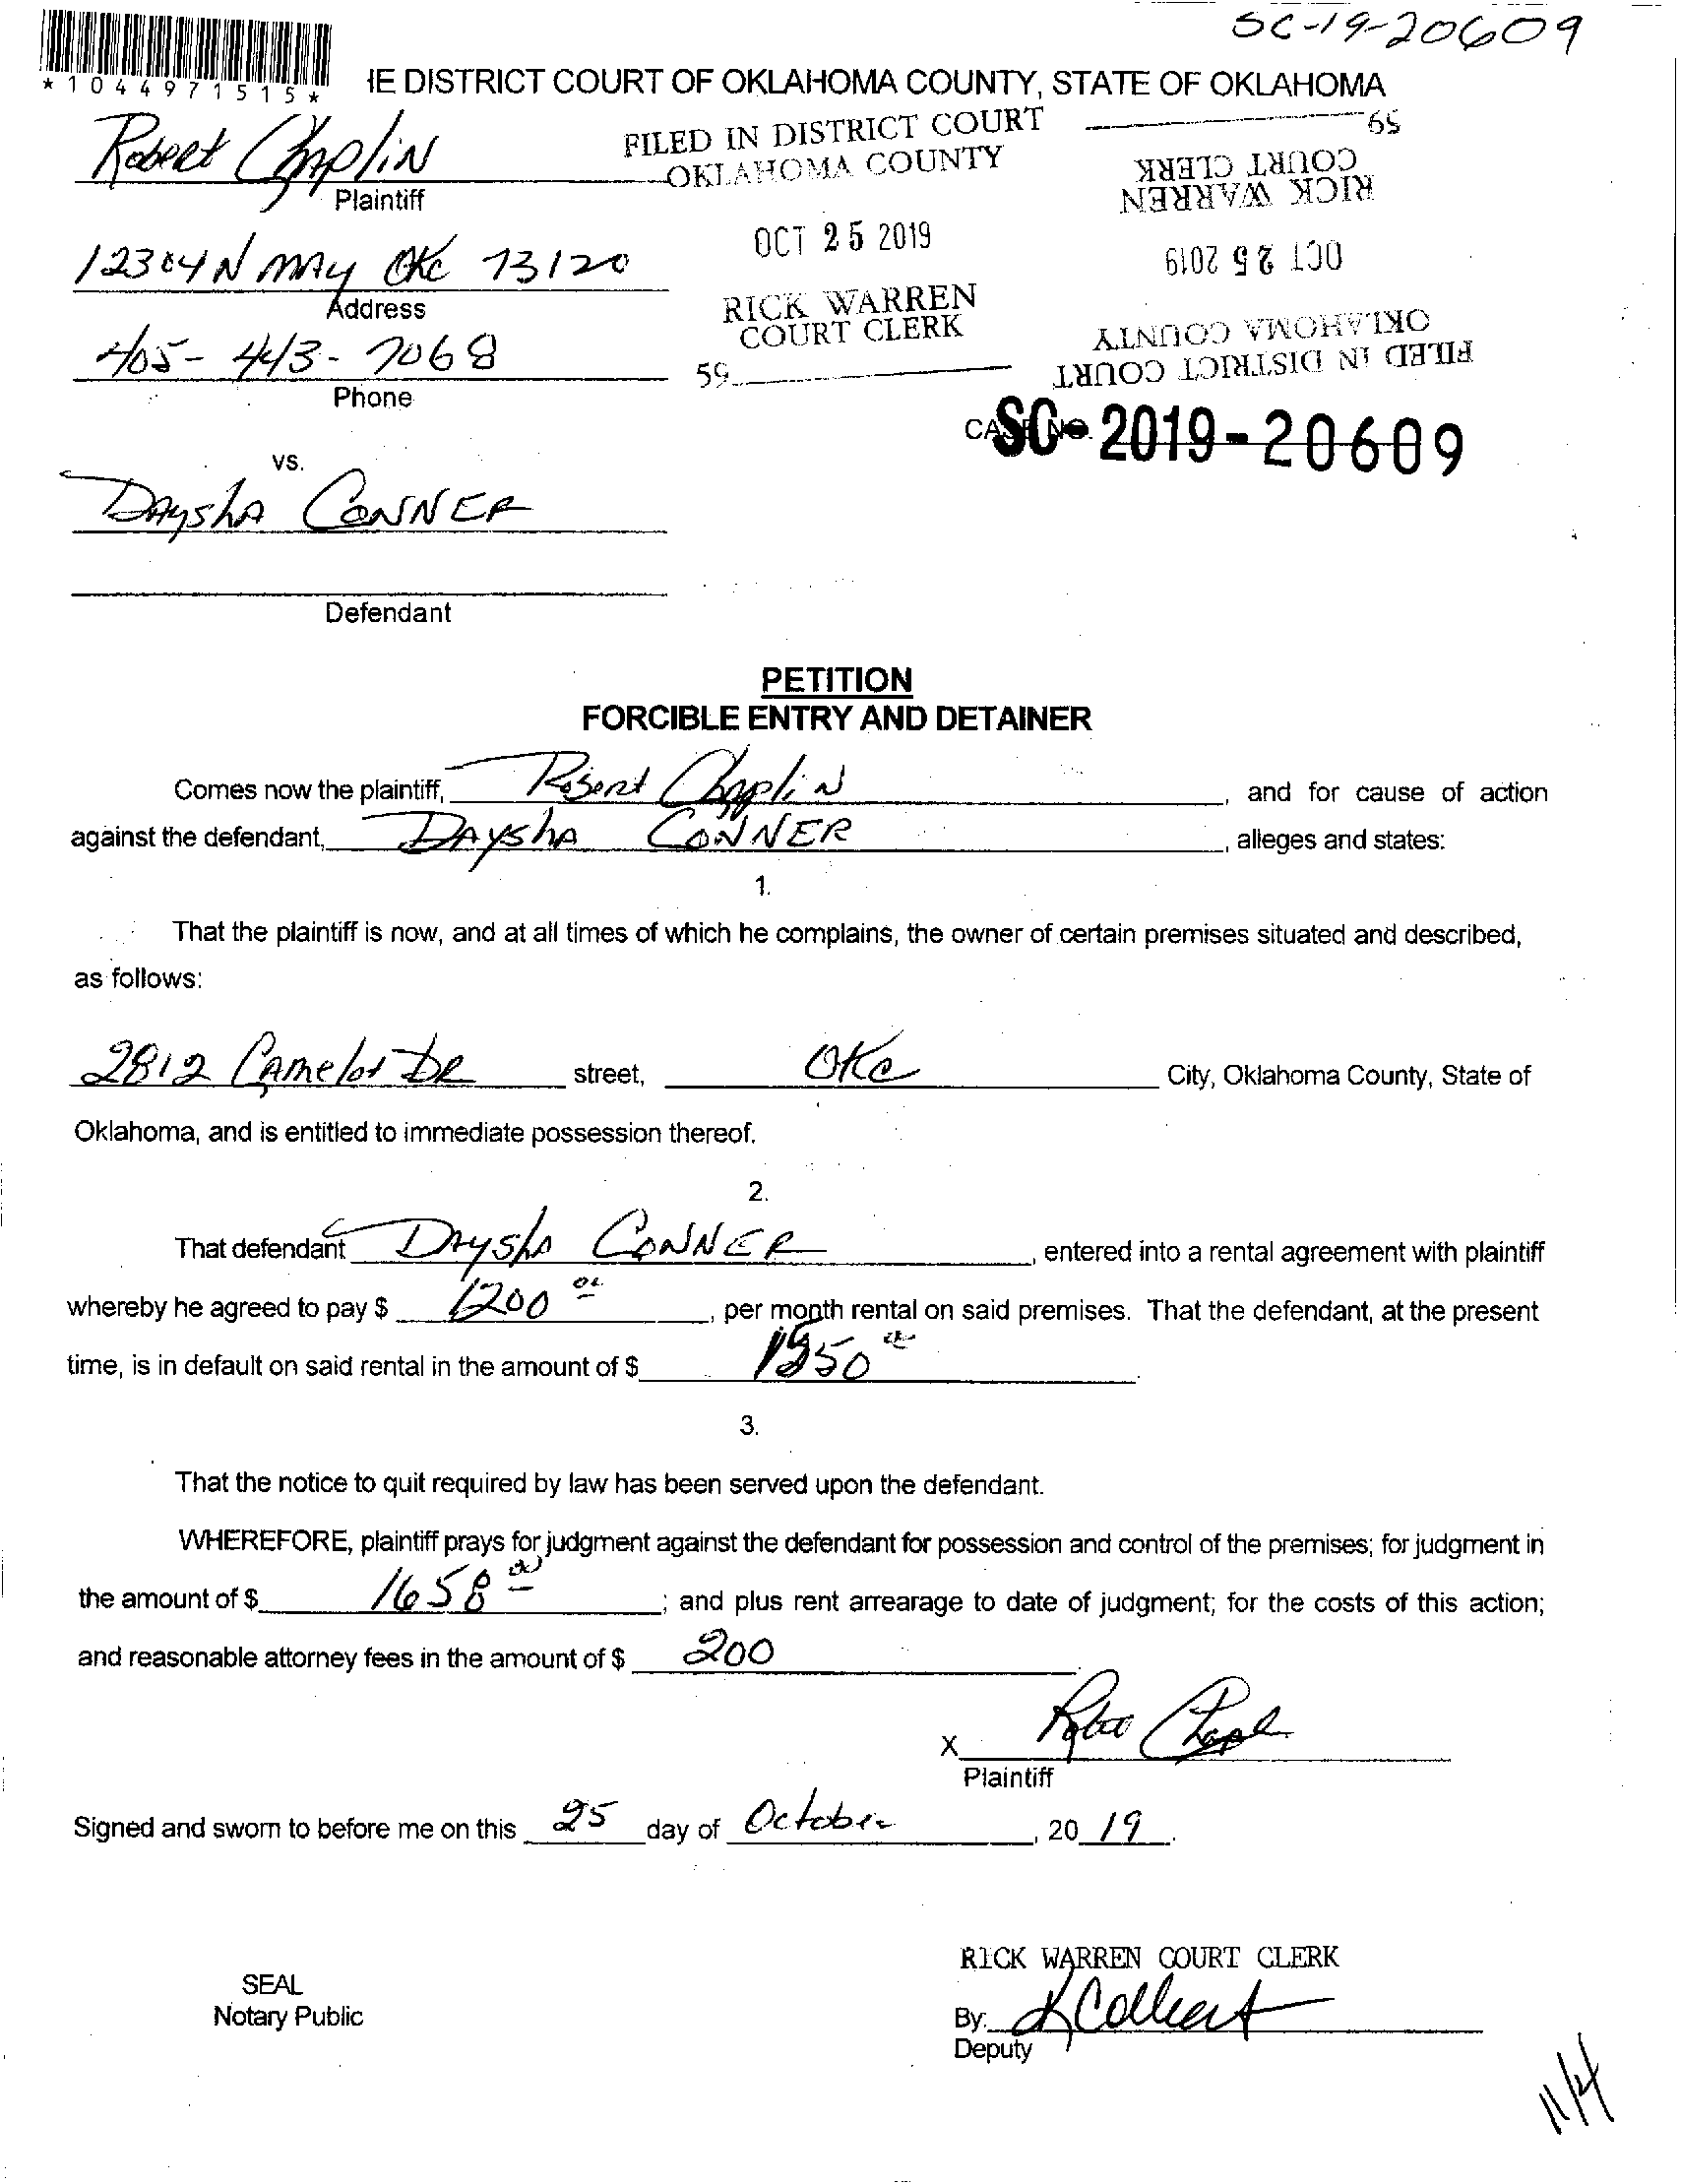 SC-19-20609
*1044971515*
IE DISTRICT COURT OF OKLAHOMA COUNTY, STATE OF OKLAHOMA
Robert Chaplin
Plaintiff
FILED IN DISTRICT COURT
OKLAHOMA COUNTY
OCT 25 2019
RICK WARREN
COURT CLERK
59
FILED IN DISTRICT COURT
OKLAHOMA COUNTY
OCT 25 2019
RICK WARREN
COURT CLERK
59
12304 N MAY OKC 73120
Address
405-443-7068
Phone
CASE NO. SC-2019-20609
vs.
DAYSHA CONNER
Defendant
PETITION
FORCIBLE ENTRY AND DETAINER
Comes now the plaintiff, Robert Chaplin, and for cause of action
against the defendant, DAYSHA CONNER, alleges and states:
1.
That the plaintiff is now, and at all times of which he complains, the owner of certain premises situated and described,
as follows:
2812 Camelot DR street, OKC City, Oklahoma County, State of
Oklahoma, and is entitled to immediate possession thereof.
2.
That defendant DAYSHA CONNER, entered into a rental agreement with plaintiff
whereby he agreed to pay $ 1200, per month rental on said premises. That the defendant, at the present
time, is in default on said rental in the amount of $
3.
That the notice to quit required by law has been served upon the defendant.
WHEREFORE, plaintiff prays for judgment against the defendant for possession and control of the premises; for judgment in
the amount of $ 1658 00; and plus rent arrearage to date of judgment; for the costs of this action;
and reasonable attorney fees in the amount of $ 200
X
Plaintiff
Signed and sworn to before me on this 25 day of October, 20 19.
RICK WARREN COURT CLERK
SEAL
Notary Public
By: K Colbert
Deputy
11/4